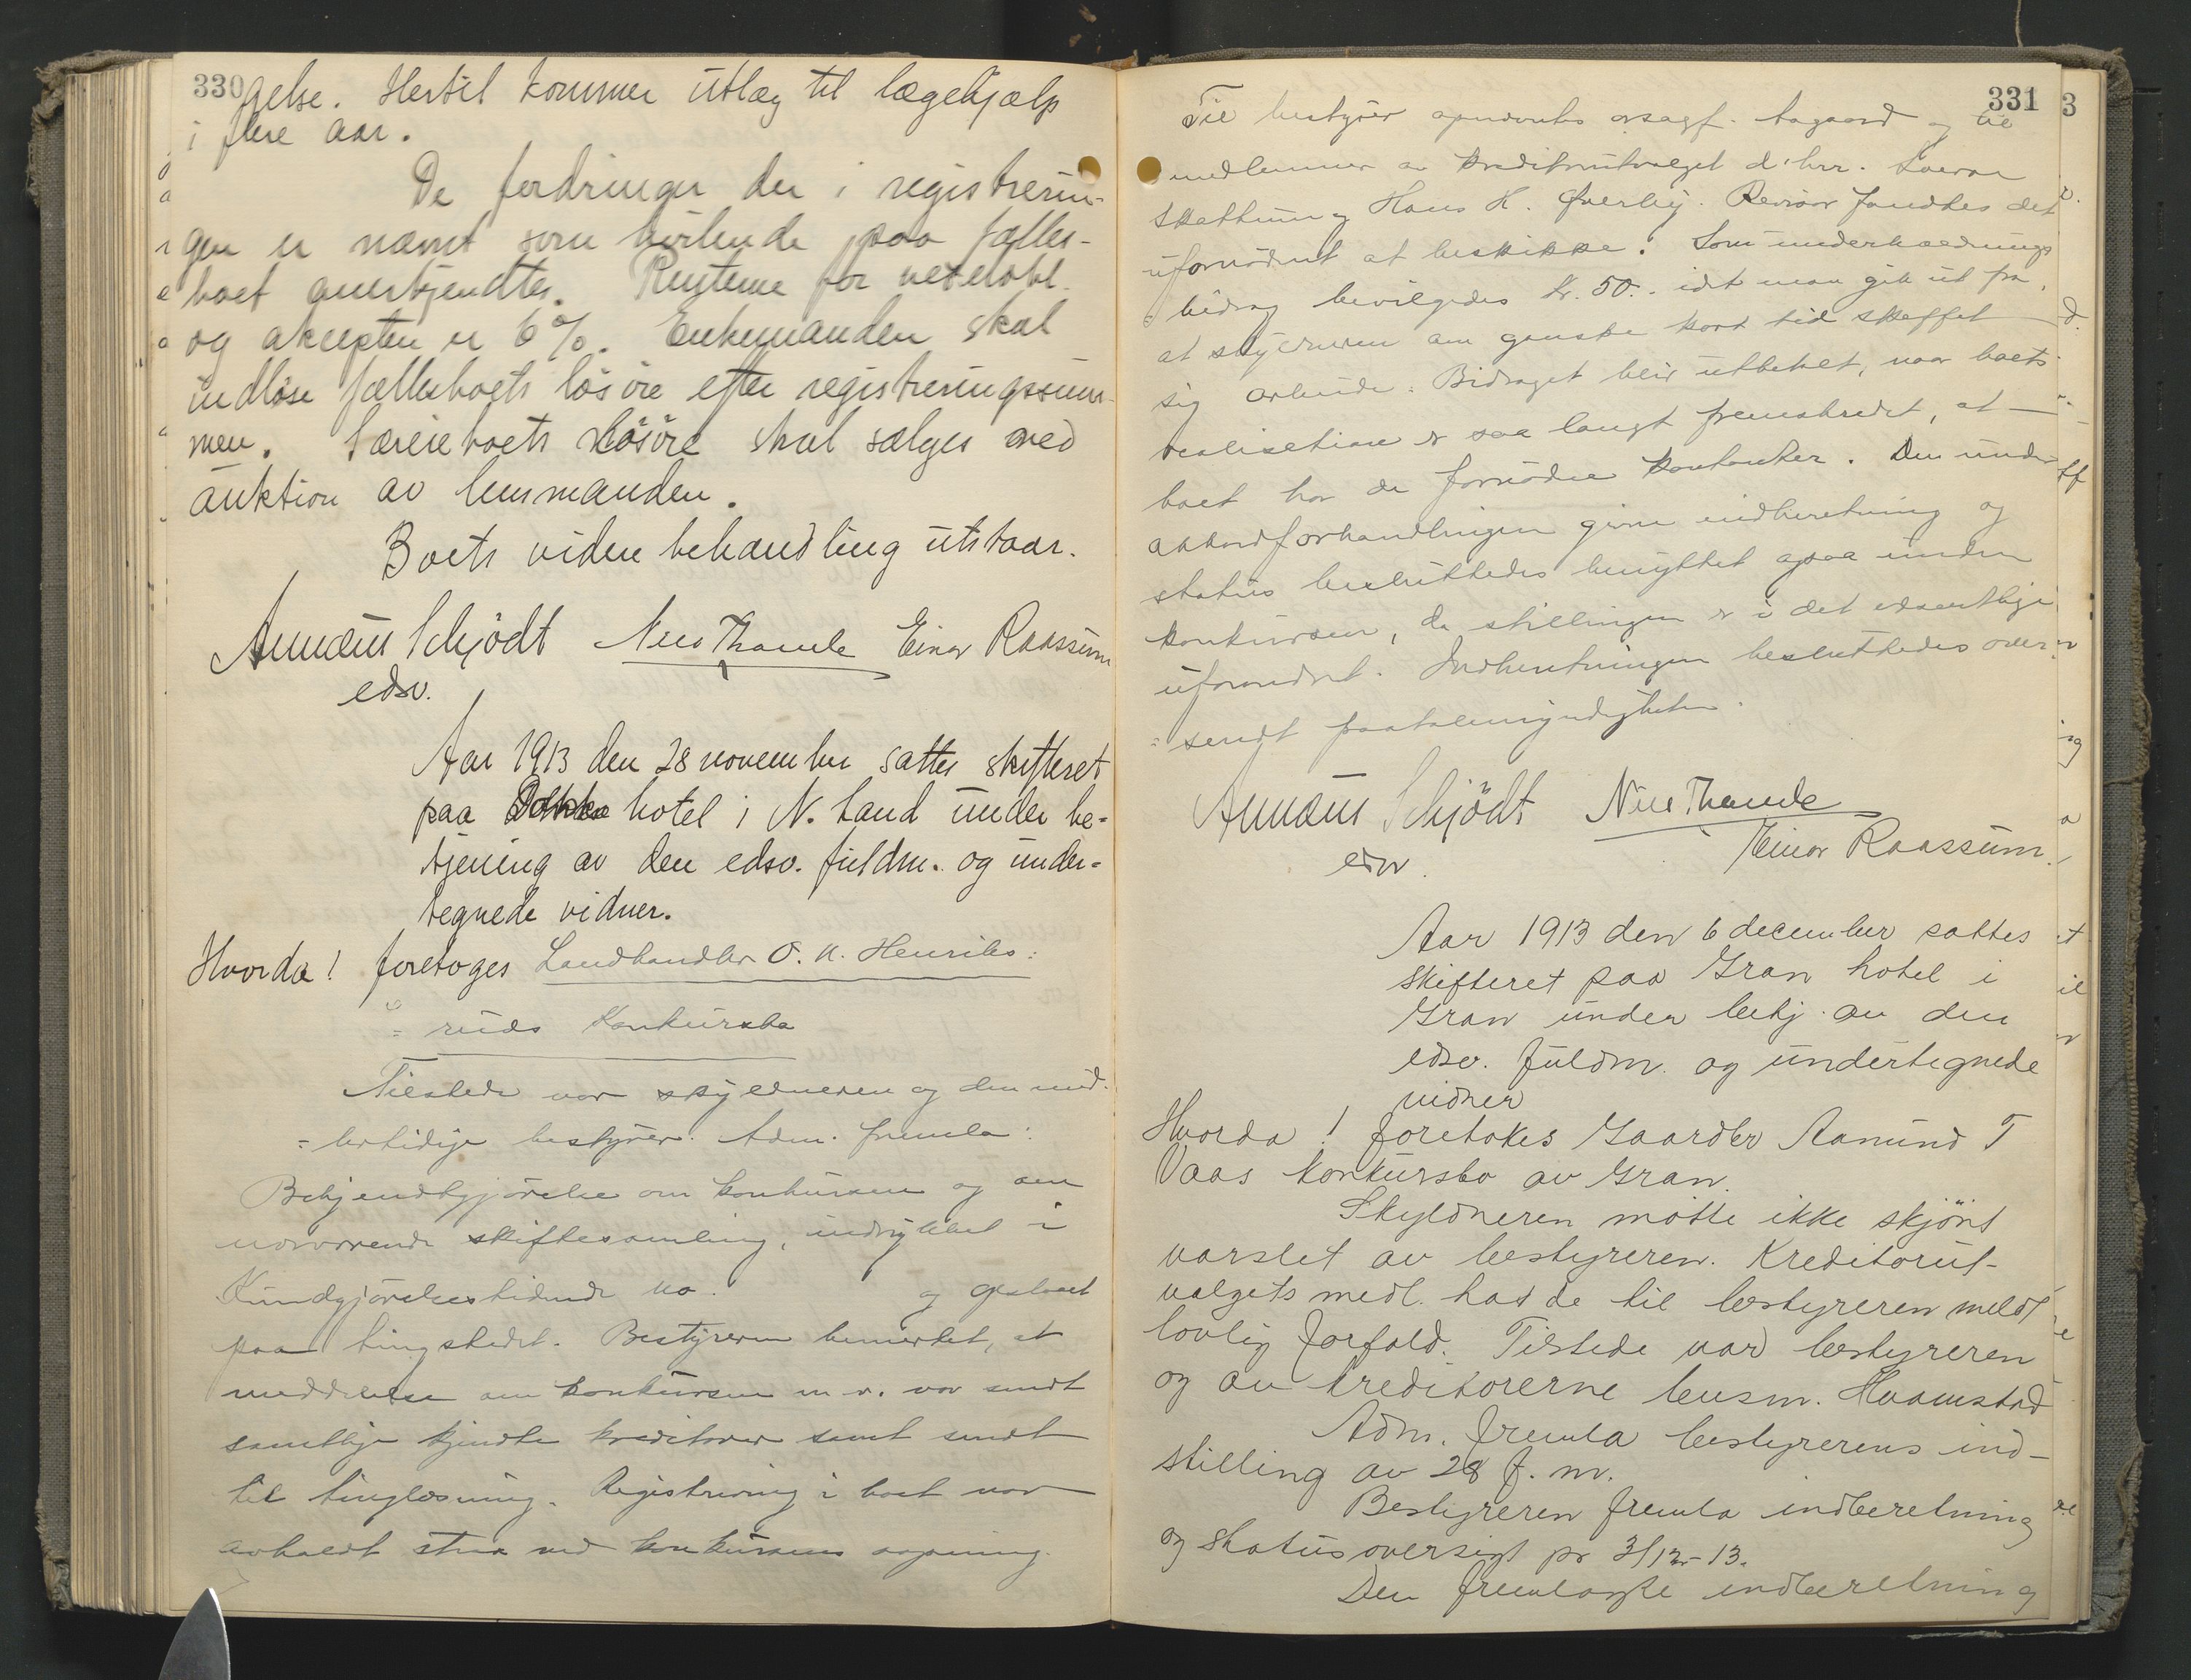 330
gelse. Hertil kommer utlæg til lægehjælp
i flere aar.
De fordringer der i registrerin-
gen er nævnt som hvilende paa fælles-
boet anerkjendtes. Renterne for vekselobl.
og akcepten er 6%. Enkemanden skal
indløse fællesboets løsøre efter registreringssum-
men. Særeieboets løsøre skal sælges ved
auktion av lensmanden.
Boets videre behandling utstaar.
Annæus Schjödt Nils Thomle Einar Raassum
edsv.
Aar 1913 den 28 november sattes skifteret
paa Dokka hotel i N. Land under be-
tjening av den edsv. fuldm. og under-
tegnede vidner.
Hvorda! foretoges Landhandler O. A. Henriks:
=ruds Konkursbo
Tilstede var skyldneren og den mid-
=lertidige bestyrer. Adm. fremla:
Bekjendtgjørelse om konkursen og om
nærværende skiftesamling, indrykket i
Kundgjørelsestidende no. og opslaaet
paa tingstedet. Bestyreren bemerket, at
meddelelse om konkursen m. v. var sendt
samtlige kjendte kreditorer samt sendt
til tinglæsning. Registrering i boet var
avholdt strax ved konkursens aapning.
331
Til bestyrer opnævntes o.sagf. Aagaard og til
medlemmer av kreditorutvalget d'hrr.
Skattum og Hans H. Øverby. Revisor fandtes det
ufornødent at beskikke. Som underholdnings
bidrag bevilgedes kr. 50.. idet man gik ut fra,
at skyldneren om ganske kort tid skaffet
sig arbeide. Bidraget blir utbetalt, naar boets
realisation er saa langt fremskredet, at
boet har de fornødne kontanter. Den under
akkordforhandlingen givne indberetning og
status besluttedes benyttet ogsaa under
konkursen, da stillingen er i det væsentlige
uforandret. Indberetningen besluttedes over
=sendt paatalemyndigheten.
Annæus Schjödt Nils Thomle
edsv. Einar Raassum.
Aar 1913 den 6 december sattes
skifteret paa Gran hotel i
Gran under betj. av den
edsv. fuldm. og undertegnede
vidner
Hvorda! foretokes Gaardbr Aamund T
Vaas konkursbo av Gran.
Skyldneren møtte ikke skjønt
varslet av bestyreren. Kreditorut-
valgets medl. hadde til bestyreren meldt
lovlig forfald. Tilstede var bestyreren
og av kreditorerne lensm. Hvamstad
Adm. fremla bestyrerens ind-
stilling av 28 f. m.
Bestyreren fremla indberetning
og statusoversigt pr 3/12-13.
Den fremlagte indberetning